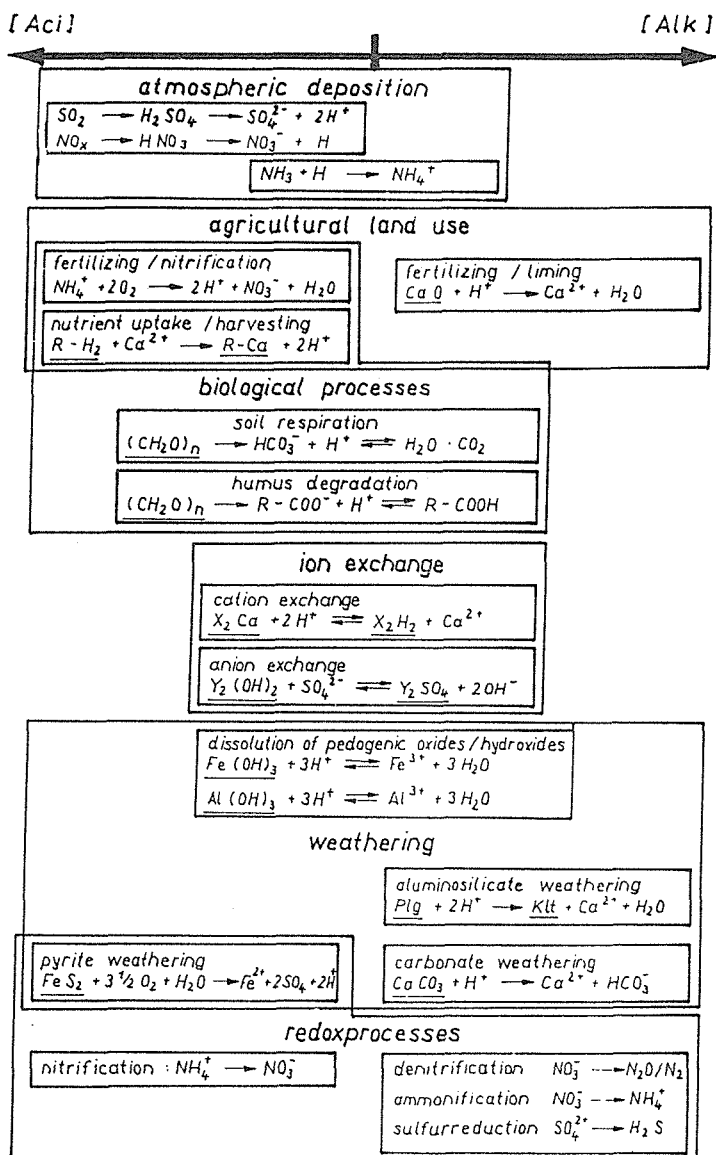 [Aci] [Alk]
atmospheric deposition
SO₂ → H₂SO₄ → SO₄²⁻ + 2H⁺
NOₓ → HNO₃ → NO₃⁻ + H
NH₃ + H → NH₄⁺
agricultural land use
fertilizing / nitrification
NH₄⁺ + 2O₂ → 2H⁺ + NO₃⁻ + H₂O
fertilizing / liming
CaO + H⁺ → Ca²⁺ + H₂O
nutrient uptake / harvesting
R-H₂ + Ca²⁺ → R-Ca + 2H⁺
biological processes
soil respiration
(CH₂O)ₙ → HCO₃⁻ + H⁺ ⇌ H₂O · CO₂
humus degradation
(CH₂O)ₙ → R-COO⁻ + H⁺ ⇌ R-COOH
ion exchange
cation exchange
X₂Ca + 2H⁺ ⇌ X₂H₂ + Ca²⁺
anion exchange
Y₂(OH)₂ + SO₄²⁻ ⇌ Y₂SO₄ + 2OH⁻
dissolution of pedogenic oxides/hydroxides
Fe(OH)₃ + 3H⁺ ⇌ Fe³⁺ + 3H₂O
Al(OH)₃ + 3H⁺ ⇌ Al³⁺ + 3H₂O
weathering
aluminosilicate weathering
Plg + 2H⁺ → Klt + Ca²⁺ + H₂O
pyrite weathering
FeS₂ + 3 ½ O₂ + H₂O → Fe²⁺ + 2SO₄ + 2H⁺
carbonate weathering
CaCO₃ + H⁺ → Ca²⁺ + HCO₃⁻
redoxprocesses
nitrification : NH₄⁺ → NO₃⁻
denitrification NO₃⁻ → N₂O/N₂
ammonification NO₃⁻ → NH₄⁺
sulfurreduction SO₄²⁺ → H₂S